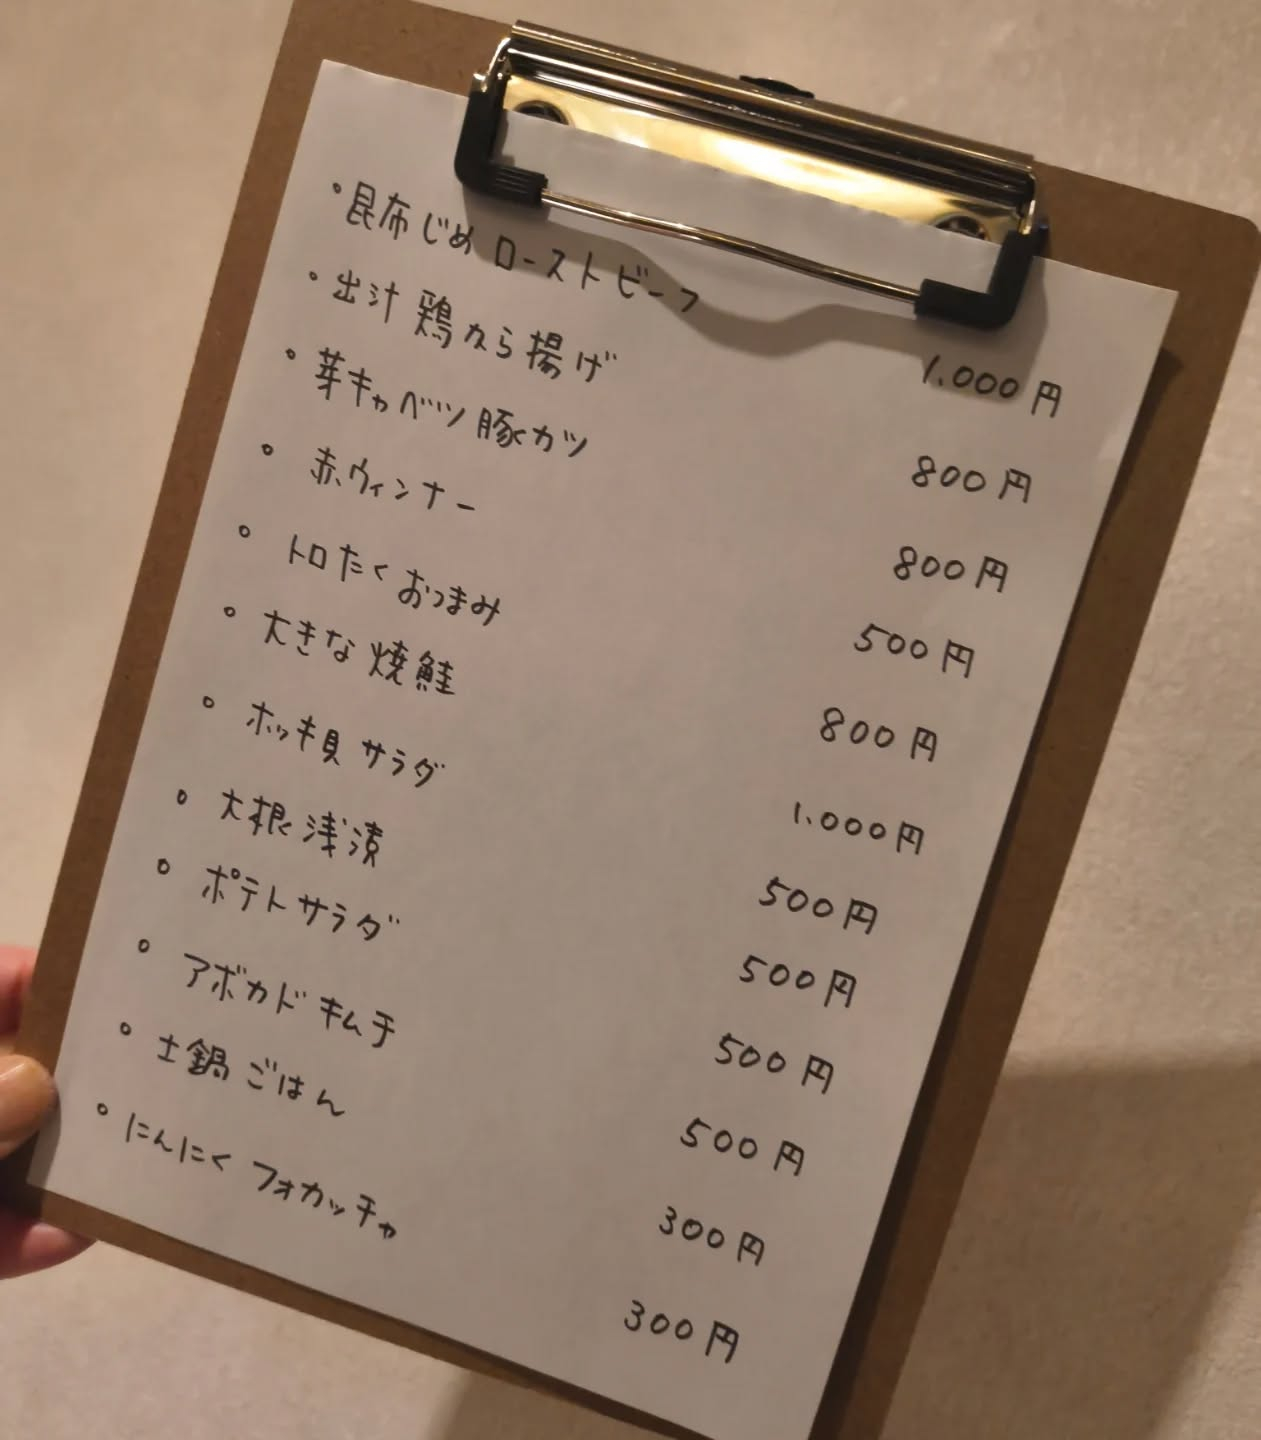 ・昆布じめローストビーフ 1.000円
・出汁鶏から揚げ 800円
・芽キャベツ豚カツ 800円
・赤ウィンナー 500円
・トロたくおつまみ 800円
・大きな焼鮭 1.000円
・ホッキ貝サラダ 500円
・大根浅漬 500円
・ポテトサラダ 500円
・アボカドキムチ 500円
・土鍋ごはん 300円
・にんにくフォカッチャ 300円